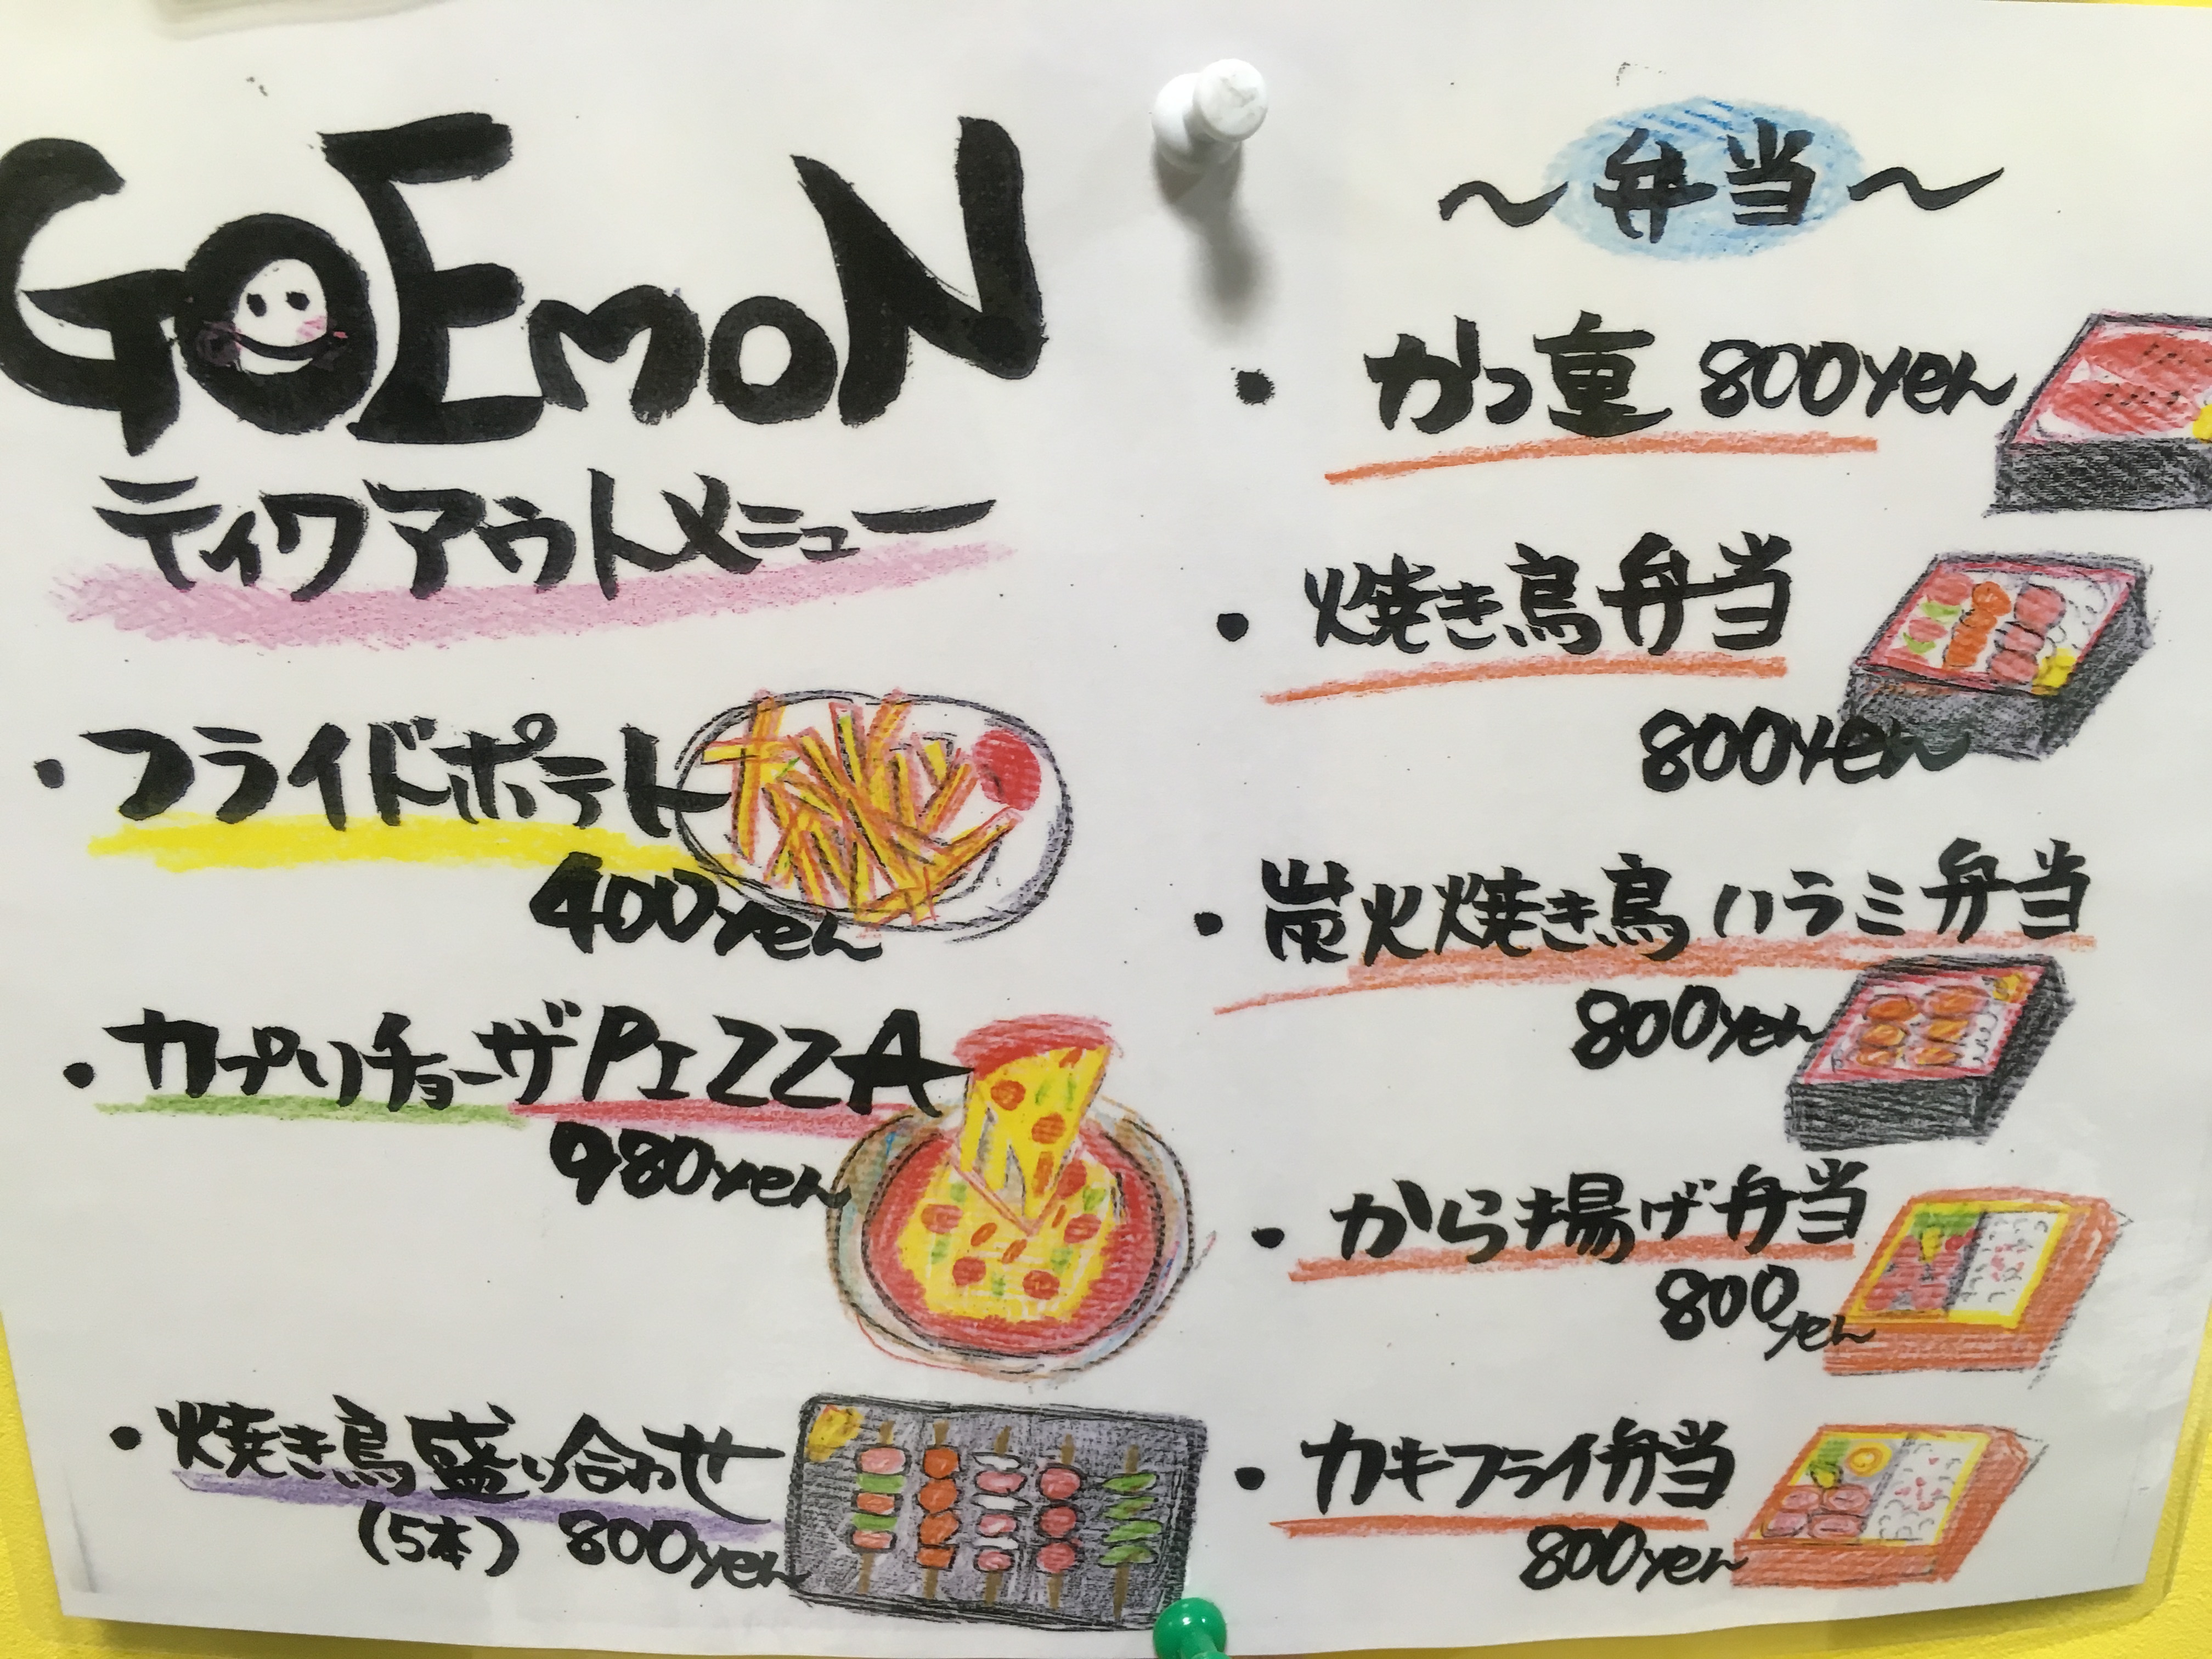 GOEmoN
ティクアウトメニュー
・フライドポテト
400yen
・カプリチョーザPIZZA
980yen
・焼き鳥盛り合わせ
(5本) 800yen
～弁当～
・かつ重 800yen
・焼き鳥弁当
800yen
・炭火焼き鳥ハラミ弁当
800yen
・から揚げ弁当
800yen
・カキフライ弁当
800yen